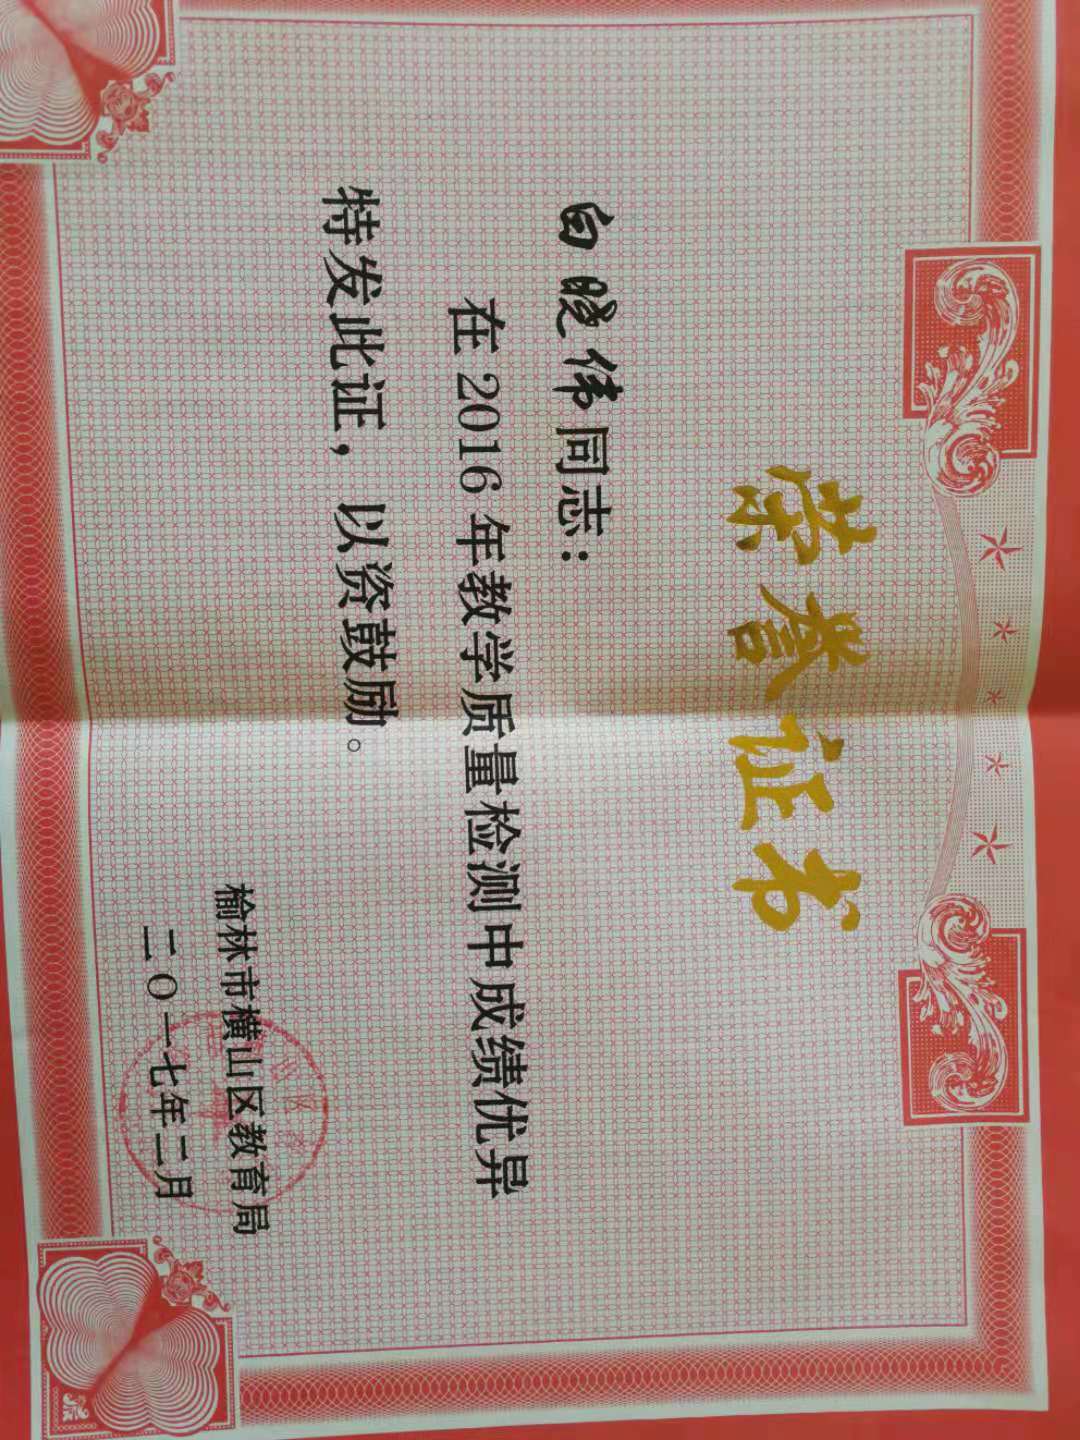 荣誉证书
白晓伟同志：
在2016年教学质量检测中成绩优异
特发此证，以资鼓励。
榆林市横山区教育局
二〇一七年二月